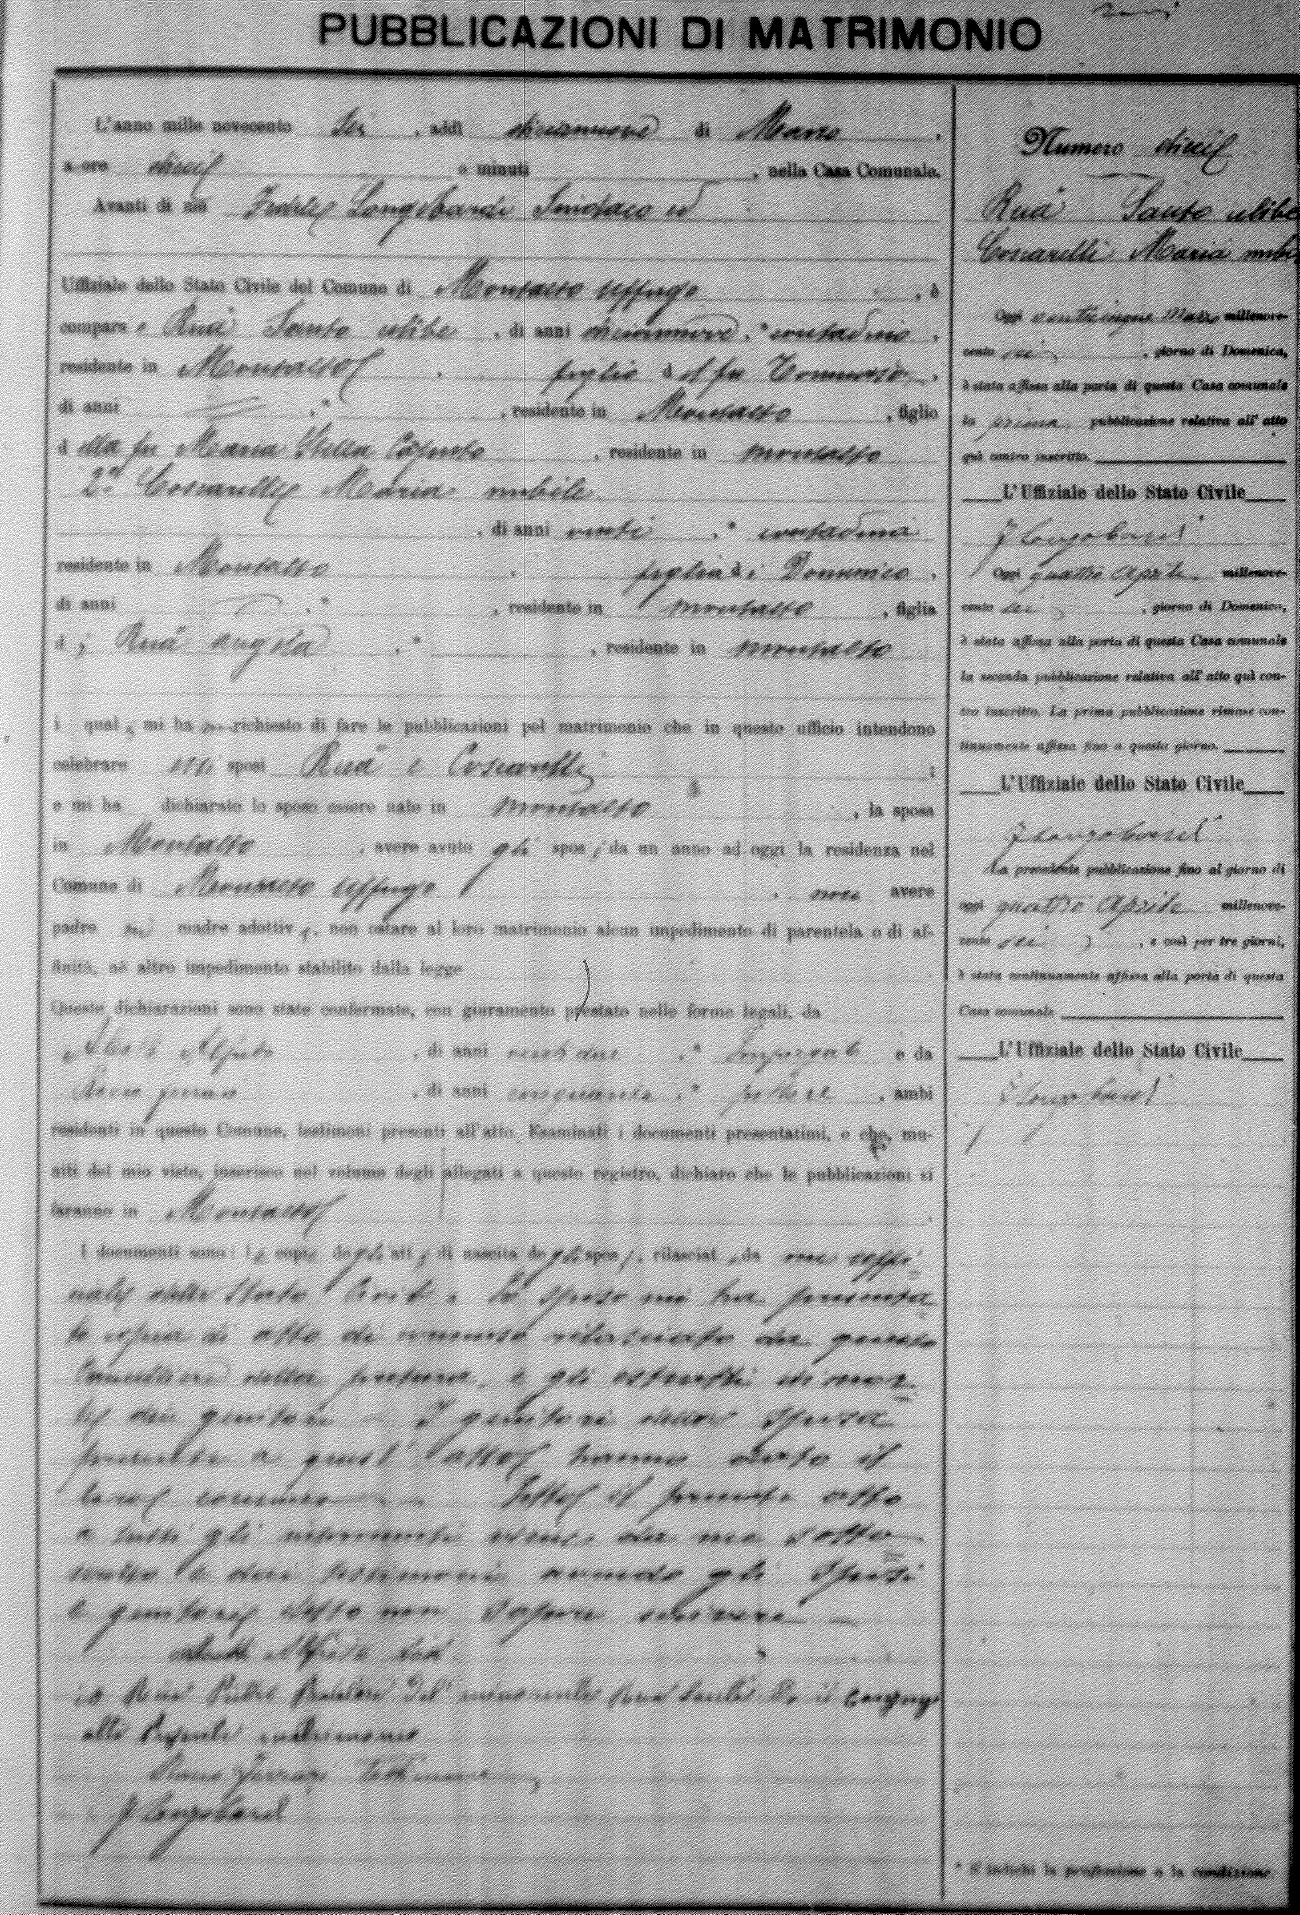 PUBBLICAZIONI DI MATRIMONIO
L'anno mille novecento sei, addì diciannove di Marzo,
a ore dieci e minuti , nella Casa Comunale.
Avanti di me Fedele Longobardi Sindaco ed
Uffiziale dello Stato Civile del Comune di Montalto Uffugo, è
comparso Ruà Santo celibe, di anni diciannove, * contadino,
residente in Montalto, figlio del fu Tommaso,
di anni , * , residente in Montalto, figlio
della fu Maria Stella , residente in Montalto
2° Coscarelli Maria nubile
, di anni venti, * contadina
residente in Montalto, figlia di Domenico,
di anni , * , residente in Montalto, figlia
di Ruà Angela , * , residente in Montalto
i quali mi ha richiesto di fare le pubblicazioni pel matrimonio che in questo ufficio intendono
celebrare essi sposi Ruà e Coscarelli;
e mi ha dichiarato lo sposo essere nato in Montalto, la sposa
in Montalto, avere avuto gli sposi da un anno ad oggi la residenza nel
Comune di Montalto Uffugo, non avere
padre nè madre adottivi, non ostare al loro matrimonio alcun impedimento di parentela o di af-
finità, nè altro impedimento stabilito dalla legge
Queste dichiarazioni sono state confermate, con giuramento prestato nelle forme legali, da
, di anni , * e da
, di anni cinquanta, * , ambi
residenti in questo Comune, testimoni presenti all'atto. Esaminati i documenti presentatimi, e che, mu-
niti del mio visto, inserisco nel volume degli allegati a questo registro, dichiaro che le pubblicazioni si
faranno in Montalto
I documenti sono: le copie degli atti di nascita degli sposi, rilasciate da me uffi-
ciale dello Stato Civile. Lo sposo mi ha presenta-
to copia di atto di consenso rilasciato da questo
Cancelliere della pretura, e gli estratti di mor-
te dei genitori. I genitori della sposa
presenti a quest'atto hanno dato il
loro consenso. Letto il presente atto
a tutti gli intervenuti viene da me sotto-
scritto e dai testimoni avendo gli sposi
e genitori detto non sapere scrivere
io Ruà Santo
alto presente matrimonio
F Longobardi
Numero dieci
Ruà Santo celibe
Coscarelli Maria nubile
Oggi venticinque Marzo millenove-
cento sei, giorno di Domenica,
è stata affissa alla porta di questa Casa comunale
la prima pubblicazione relativa all'atto
quì contro inscritto.
L'Uffiziale dello Stato Civile
F Longobardi
Oggi quattro Aprile millenove-
cento sei, giorno di Domenica,
è stata affissa alla porta di questa Casa comunale
la seconda pubblicazione relativa all'atto quì con-
tro inscritto. La prima pubblicazione rimase con-
tinuamente affissa fino a questo giorno.
L'Uffiziale dello Stato Civile
F Longobardi
La precedente pubblicazione fino al giorno di
oggi quattro Aprile millenove-
cento sei, e così per tre giorni,
è stata continuamente affissa alla porta di questa
Casa comunale
L'Uffiziale dello Stato Civile
F Longobardi
* S'indichi la professione o la condizione